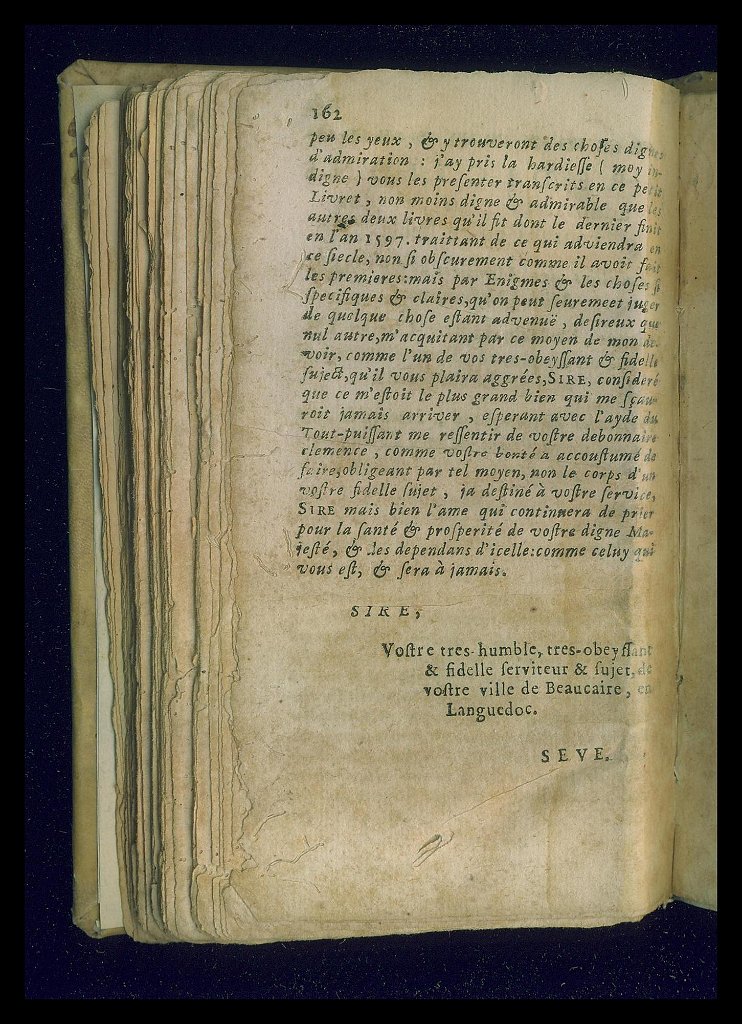 162
peu les yeux, & y trouveront des choſes dignes
d'admiration : j'ay pris la hardieſſe ( moy in-
digne ) vous les preſenter tranſcrits en ce petit
Livret, non moins digne & admirable que les
autres deux livres qu'il fit dont le dernier finit
en l'an 1597. traittant de ce qui adviendra en
ce ſiecle, non ſi obſcurement comme il avoit fait
les premieres:mais par Enigmes & les choſes ſi
ſpecifiques & claires,qu'on peut ſeuremeet juger
de quelque choſe eſtant advenuë, deſireux que
nul autre,m'acquitant par ce moyen de mon de-
voir, comme l'un de vos tres-obeyſſant & fidelle
ſujećt,qu'il vous plaira aggrées,SIRE, conſideré
que ce m'eſtoit le plus grand bien qui me ſçau-
roit jamais arriver, eſperant avec l'ayde du
Tout-puiſſant me reſſentir de voſtre debonnaire
clemence, comme voſtre bonté a accouſtumé de
faire,obligeant par tel moyen, non le corps d'un
voſtre fidelle ſujet, ja deſtiné à voſtre ſervice,
SIRE mais bien l'ame qui continuera de prier
pour la ſanté & proſperité de voſtre digne Ma-
jeſté, & les dependans d'icelle:comme celuy qui
vous eſt, & ſera à jamais.
SIRE,
Voſtre tres-humble, tres-obeyſſant
& fidelle ſerviteur & ſujet, de
voſtre ville de Beaucaire, en
Languedoc.
SEVE.